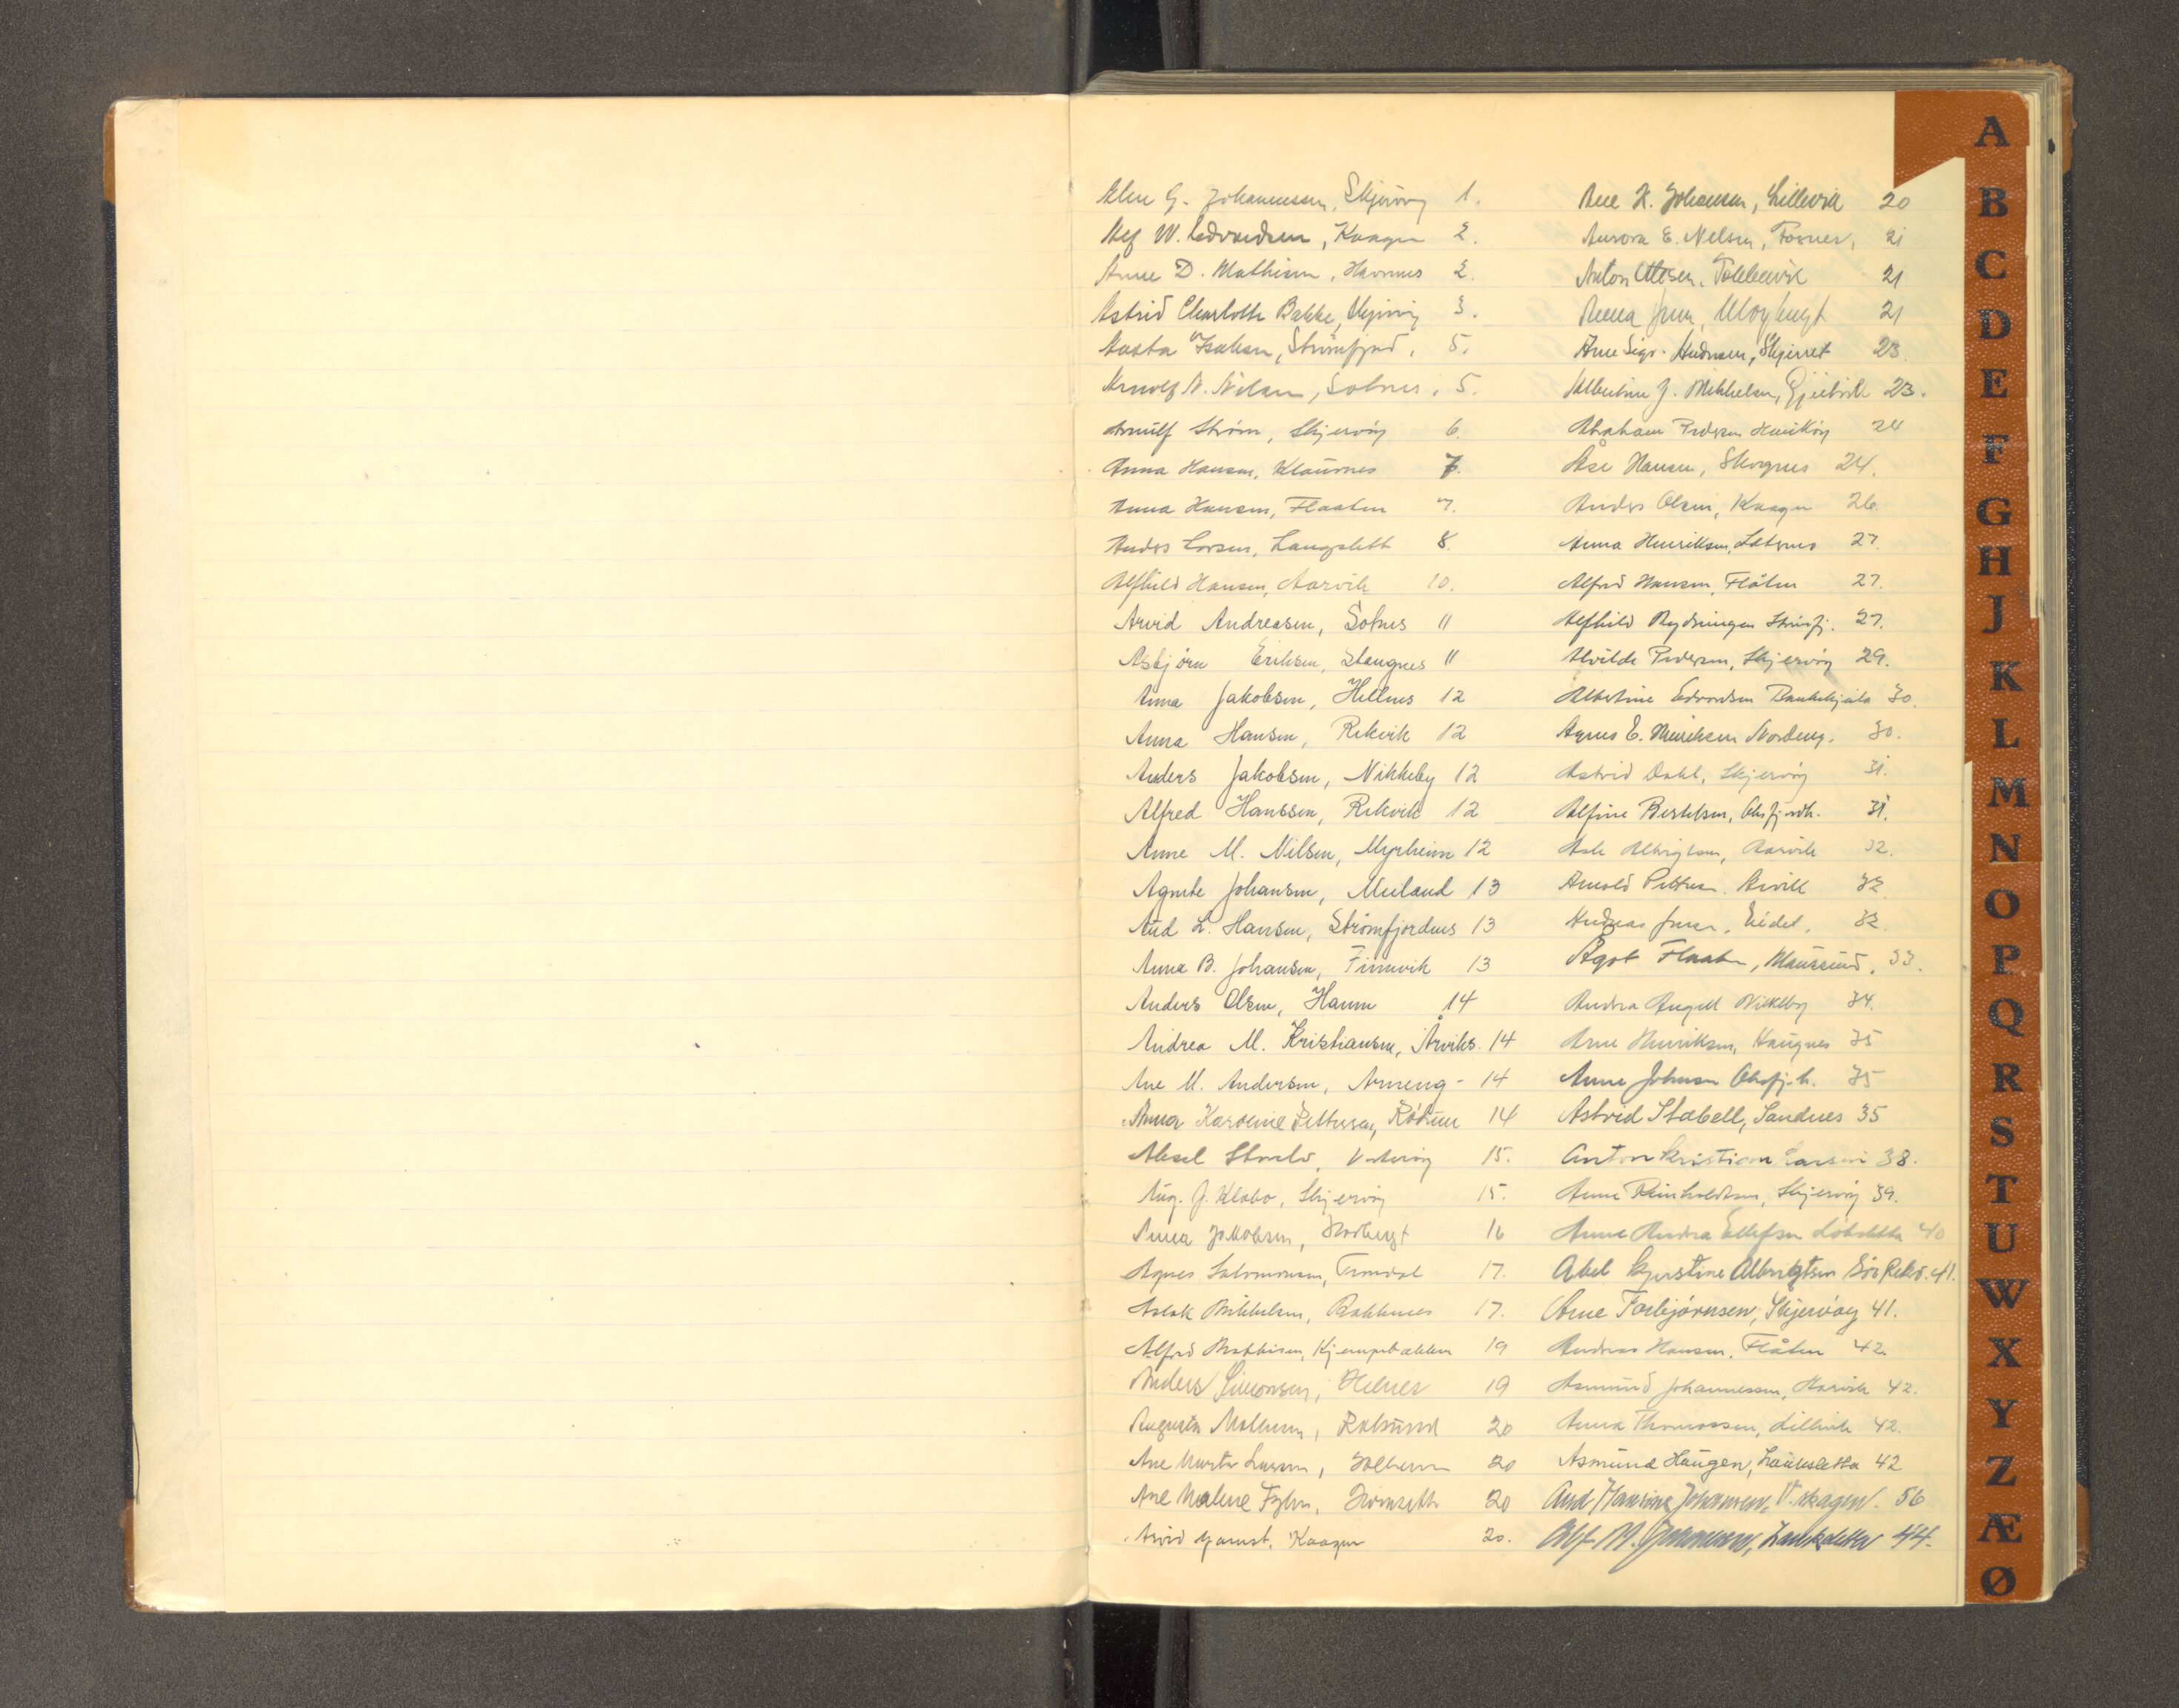 Aline G. Johannessen, Skjervøy 1.
Alf W. Edvardsen, Kaagen 2.
Anne D. Mathisen, Havnnes 2.
Astrid Charlotte Bakke, Skjervøy 3.
Aasta Isaksen, Strømfjord, 5.
Arnolf N. Nilsen, Sotnes, 5.
Arnulf Strøm, Skjervøy 6.
Anna Hansen, Klauvnes 7.
Anna Hansen, Flaaten 7.
Anders Larsen, Langslett 8.
Alfhild Hansen, Aarvik 10.
Arvid Andreasen, Sotnes 11
Asbjørn Eriksen, Stangnes 11
Anna Jakobsen, Hellnes 12
Anna Hansen, Rekvik 12
Anders Jakobsen, Nikkeby 12
Alfred Hanssen, Rekvik 12
Anne M. Nilsen, Myrheim 12
Agnete Johansen, Meiland 13
Aud L. Hansen, Strømfjordnes 13
Anna B. Johansen, Finnvik 13
Anders Olsen, Hamn 14
Andrea M. Kristiansen, Årviks. 14
Ane M. Andersen, Arneng - 14
Anna Karoline Pettersen, Rødum 14
Aksel 15.
Aug. J. Klabo, Skjervøy 15.
Anna Jakobsen, Nordbugt 16
Agnes Salomonsen, 17.
Aslak Mikkelsen, Bakknes 17.
Alfred Mathisen, Kjempebakken 19
Anders Simonsen, Helnes 19
Augusta Mathisen, Rotsund 20
Ane Marta Larsen, 20
Ane Malene Fyhn, 20
Arvid Garnst, Kaagen 20.
Ane K. Johansen, Lillevik 20
Aurora E. Nilsen, 21
Anton Ottesen, Tolleivik 21
Anna Jensen, Uløybugt 21
Arne Sigv. Andersen, Skjerret 23.
Albertine J. Mikkelsen, Gjøvik 23.
Abraham Pedersen Hamnøy 24
Åse Hansen, Skognes 24.
Anders Olsen, Kaagen 26.
Anna Henriksen, 27.
Alfred Hansen, Flåten 27.
Alfhild Rydningen Strømfj. 27.
Alvilde Pedersen, Skjervøy 29.
Albertine Edvardsen Bankekjeila 30.
Agnes E. Henriksen Nordeng. 30.
Astrid Dahl, Skjervøy 31.
Alfine Bertelsen, Oksfjordh. 31.
Asle Albrigtsen, Aarvik 32.
Arnold Pettersen. Arvik 32
Andreas Jensen, Eidet, 32.
Ågot Flaaten, Maursund, 33.
Andrea Angell Nikkeby 34.
Arne Henriksen, Haugnes 35
Anna Johnsen Oksfj.h. 35
Astrid Stabell, Sandnes 35
Anton Kristian Larsen 38.
Anne Reinholdtsen, Skjervøy 39.
Anne Andrea Ellefsen 40
Abel Kjerstine Albrigtsen Sör Rekv. 41.
Arne Torbjörnsen, Skjervöy 41.
Andreas Hansen, Flåten 42.
Asmund Johannessen, Harvik 42.
Anna Thomassen, Lillevik 42.
Asmund Haugen, Lauksletta 42
Aud Hansine Johansen, V. skagen. 56
Alf M. Johansen, Lauksletta 44.
A
B
C
D
E
F
G
H
J
K
L
M
N
O
P
Q
R
S
T
U
W
X
Y
Z
Æ
Ø